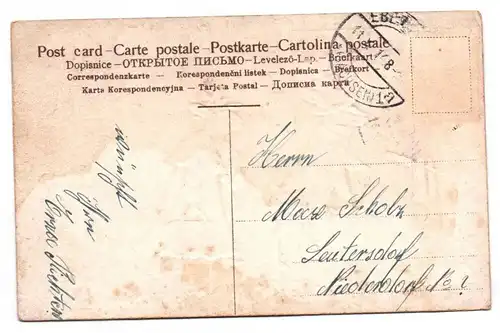 Post card - Carte postale - Postkarte - Cartolina postale
Dopisnice - ОТКРЫТОЕ ПИСЬМО - Levelező-Lap - Briefkaart
Correspondenzkarte - Korespondenční listek - Dopisnica - Brefkort
Karta Korespondencyjna - Tarjeta Postal - Дописна карта
EBE
11
8
wünscht
Ihnen
Herrn
Scholz
Leutersdorf
Niederdorf No